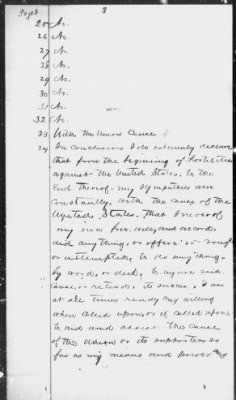 Page 3
25 No.
26 No.
27 No.
28 No.
29 No.
30 No.
31 No.
32 No.
33 With the Union Cause
34 In conclusion I do solemnly declare
that from the beginning of hostilities
against the United States to the
End thereof my sympathies were
constantly with the cause of the
United States. That I never of
my own free will and accord
did anything, or offered or sought
or attempted to do anything
by word or deed, to injure said
cause or retard its success. I was
at all times ready and willing
when called upon or if called upon
to aid and assist the cause
of the Union or its supporters so
far as my means and power and